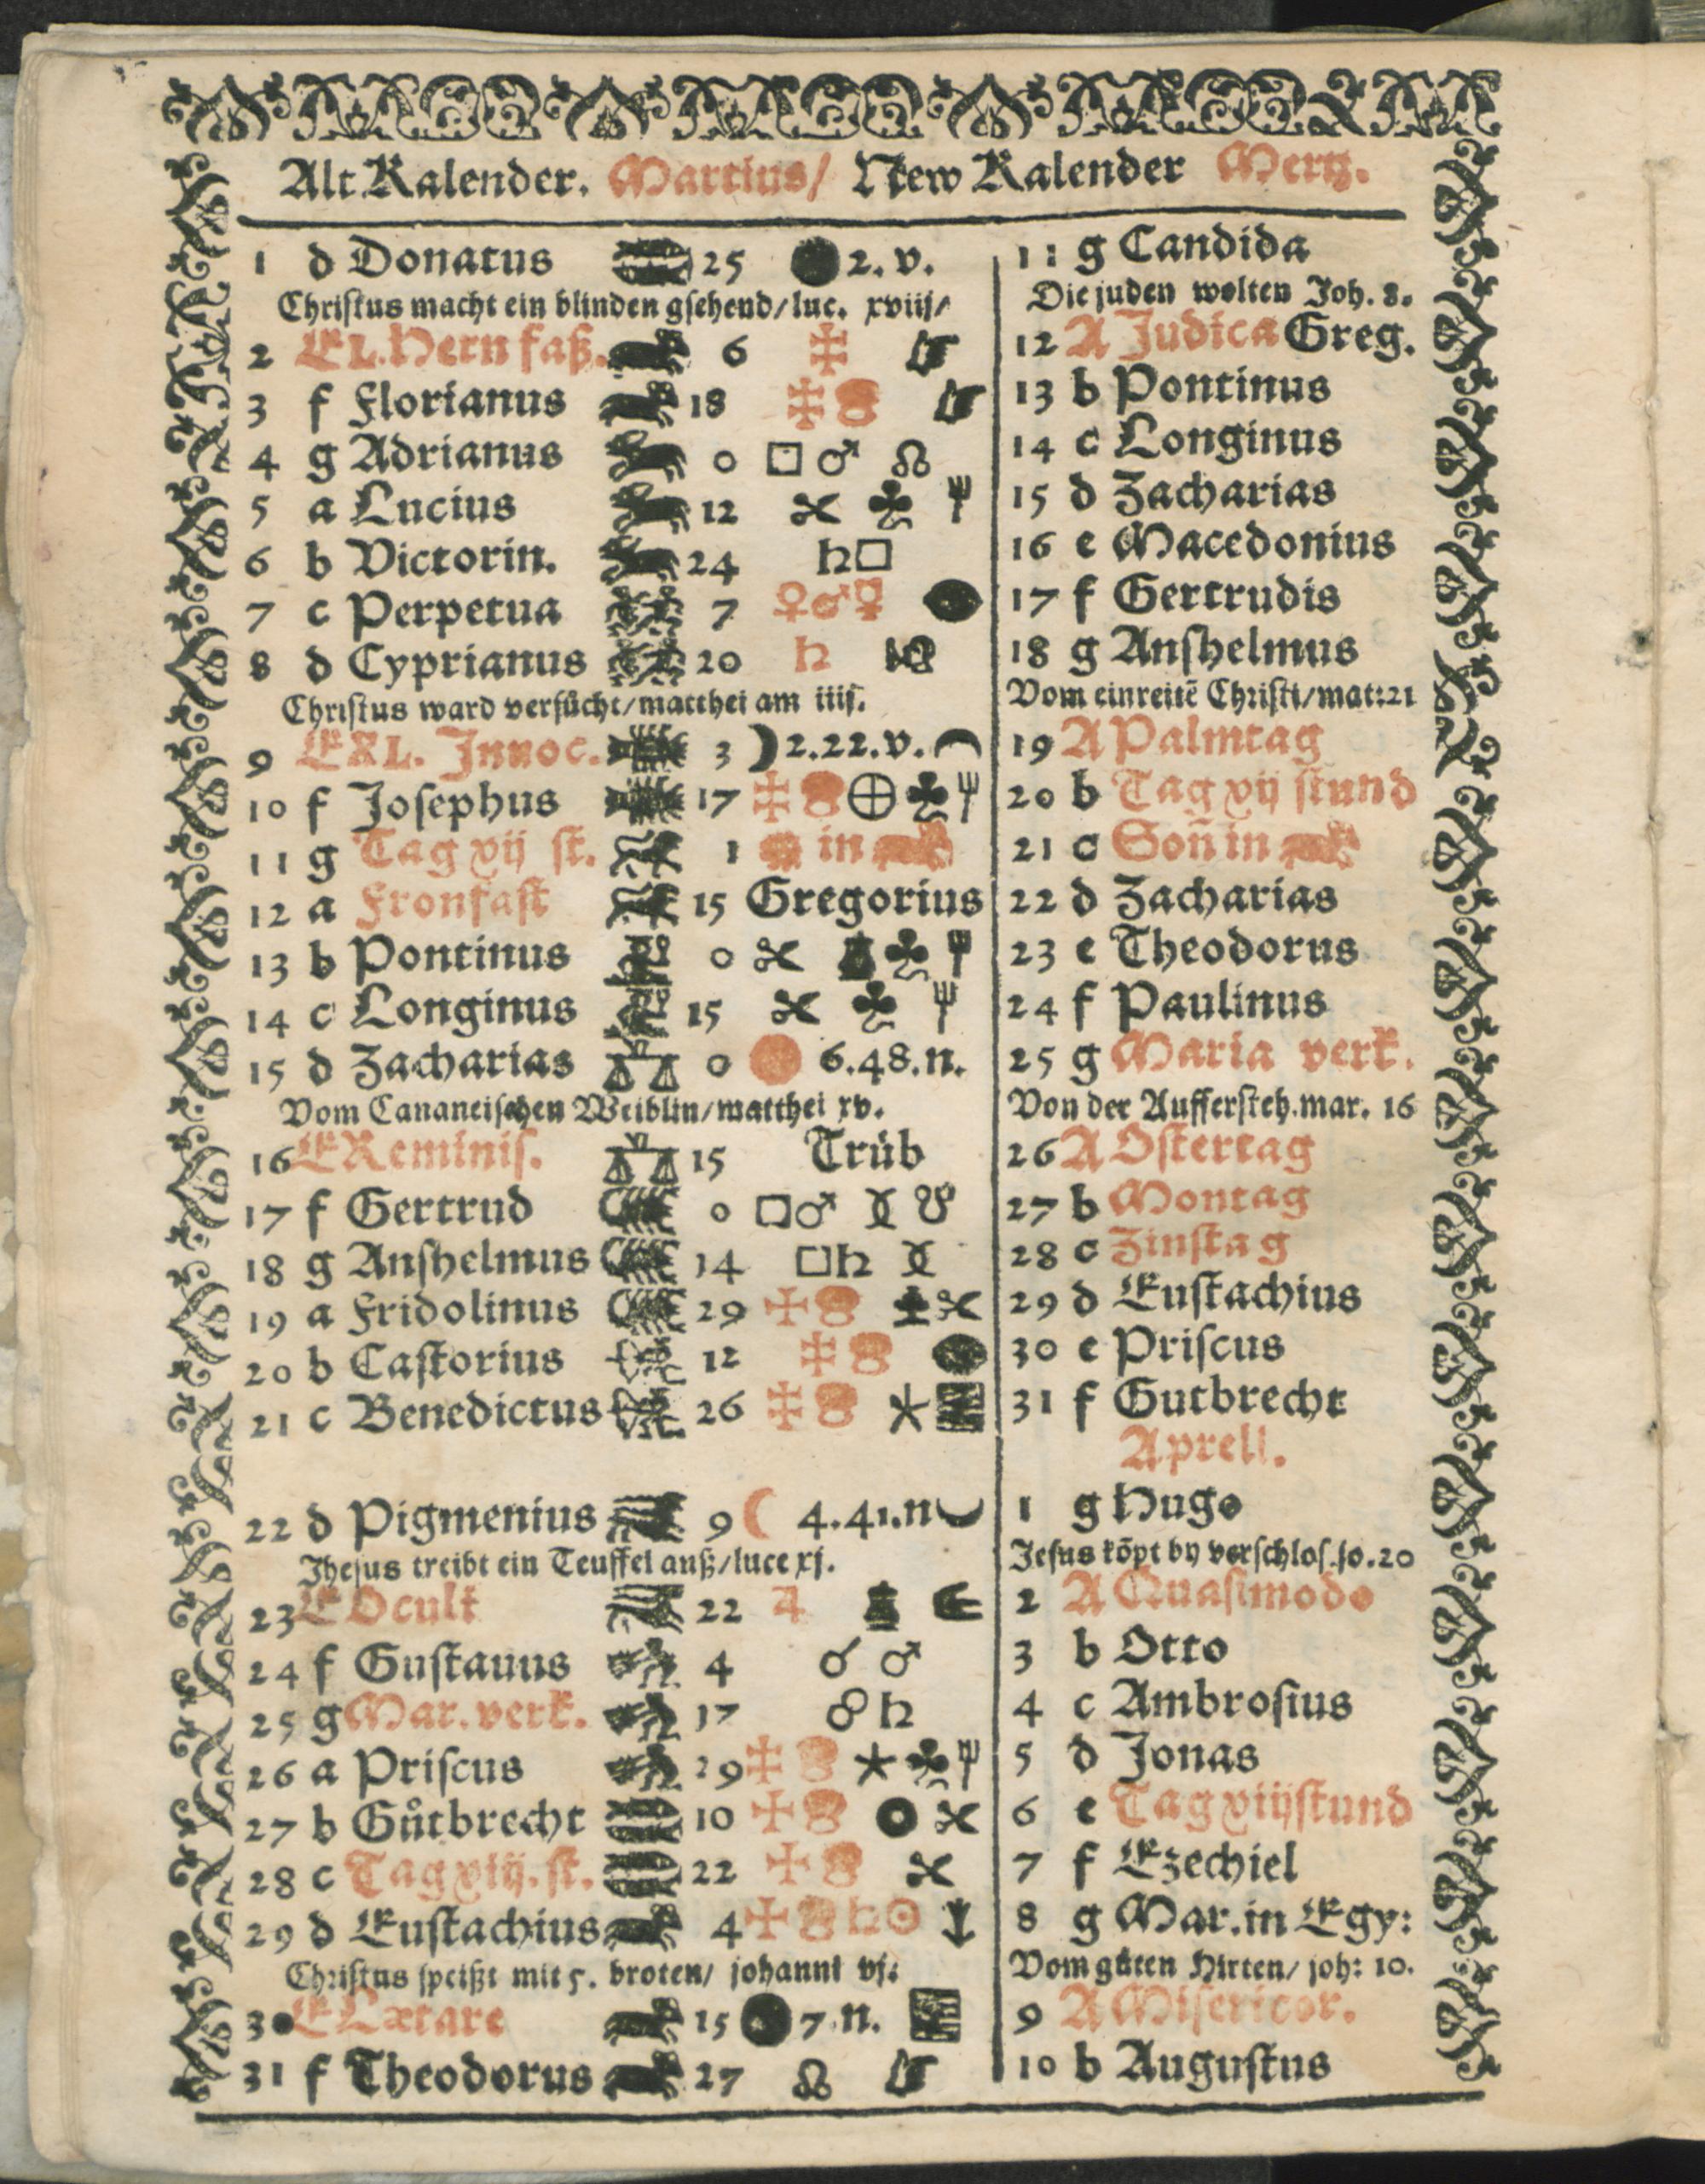 Alt Kalender. Martius/ New Kalender Mertz.
1 d Donatus 25 2. v.
Christus macht ein blinden gsehend/luc. xviij/
2 E L. Hern faß. 6
3 f Florianus 18
4 g Adrianus 0 □ ♂ ☊
5 a Lucius 12
6 b Victorin. 24 ♄□
7 c Perpetua 7 ♀♂☿
8 d Cyprianus 20 ♄
Christus ward versůcht/matthei am iiij.
9 E XL. Innoc. 3 ☽ 2.22.v.
10 f Josephus 17
11 g Tag xij st. 1 in
12 a Fronfast 15 Gregorius
13 b Pontinus 0
14 c Longinus 15
15 d Zacharias 0 6.48.n.
Vom Cananeischen Weiblin/matthei xv.
16 E Reminis. 15 Trüb
17 f Gertrud 0 □♂ ☋
18 g Anshelmus 14 □♄
19 a Fridolinus 29
20 b Castorius 12
21 c Benedictus 26
22 d Pigmenius 9 ☾ 4.41.n
Jhesus treibt ein Teuffel auß/luce xj.
23 E Oculi 22 ♃
24 f Gustauus 4 ☌ ♂
25 g Mar. verk. 17 ☍ ♄
26 a Priscus 29
27 b Gůtbrecht 10
28 c Tag xiij. st. 22
29 d Eustachius 4 ♄☉
Christus speißt mit 5. broten/ johanni vj.
30 E Lætare 15 7.n.
31 f Theodorus 27 ☊
11 g Candida
Die juden wolten Joh. 8.
12 A Judica Greg.
13 b Pontinus
14 c Longinus
15 d Zacharias
16 e Macedonius
17 f Gertrudis
18 g Anshelmus
Vom einreitē Christi/mat:21
19 A Palmtag
20 b Tag xij stund
21 c Soñ in
22 d Zacharias
23 e Theodorus
24 f Paulinus
25 g Maria verk.
Von der Auffersteh. mar. 16
26 A Ostertag
27 b Montag
28 c Zinstag
29 d Eustachius
30 e Priscus
31 f Gutbrecht
Aprell.
1 g Hugo
Jesus kōpt by verschlos. jo. 20
2 A Quasimodo
3 b Otto
4 c Ambrosius
5 d Jonas
6 e Tag xiij stund
7 f Ezechiel
8 g Mar. in Egy:
Vom gůten Hirten/ joh: 10.
9 A Misericor.
10 b Augustus